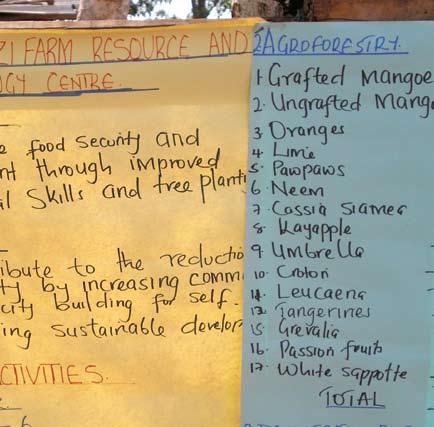 ZI FARM RESOURCE AND
GY CENTRE.
e food security and
nt through improved
al skills and tree planti
ibute to the reductio
ty by increasing comm
city building for self.
ing sustainable develop
CTIVITIES.
2 AGROFORESTRY.
1. Grafted Mangoe
2. Ungrafted Mango
3 Oranges
4 Lime
5. Pawpaws
6. Neem
7. Cassia siamea
8. Kayapple
9 Umbrella
10. Croton
11. Leucaena
13. Tangerines
15. Grevalia
16. Passion fruits
17. White sappotte
TOTAL